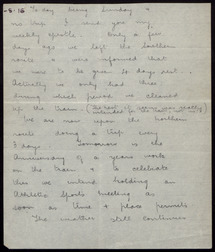 -8-16 To-day being Sunday &
no trip I send you my
weekly epistle. Only a few
days ago we left the Southern
route & were informed that
we were to be given 10 days rest.
Actually we only had three
during which period we cleaned
up the train
We are now upon the Northern
route doing a trip every
3 days. Tomorrow is the
Anniversary of a years work
on the train & to celebrate
this we intend holding an
Athletic Sports meeting as
soon as time & place permits
The weather still continues